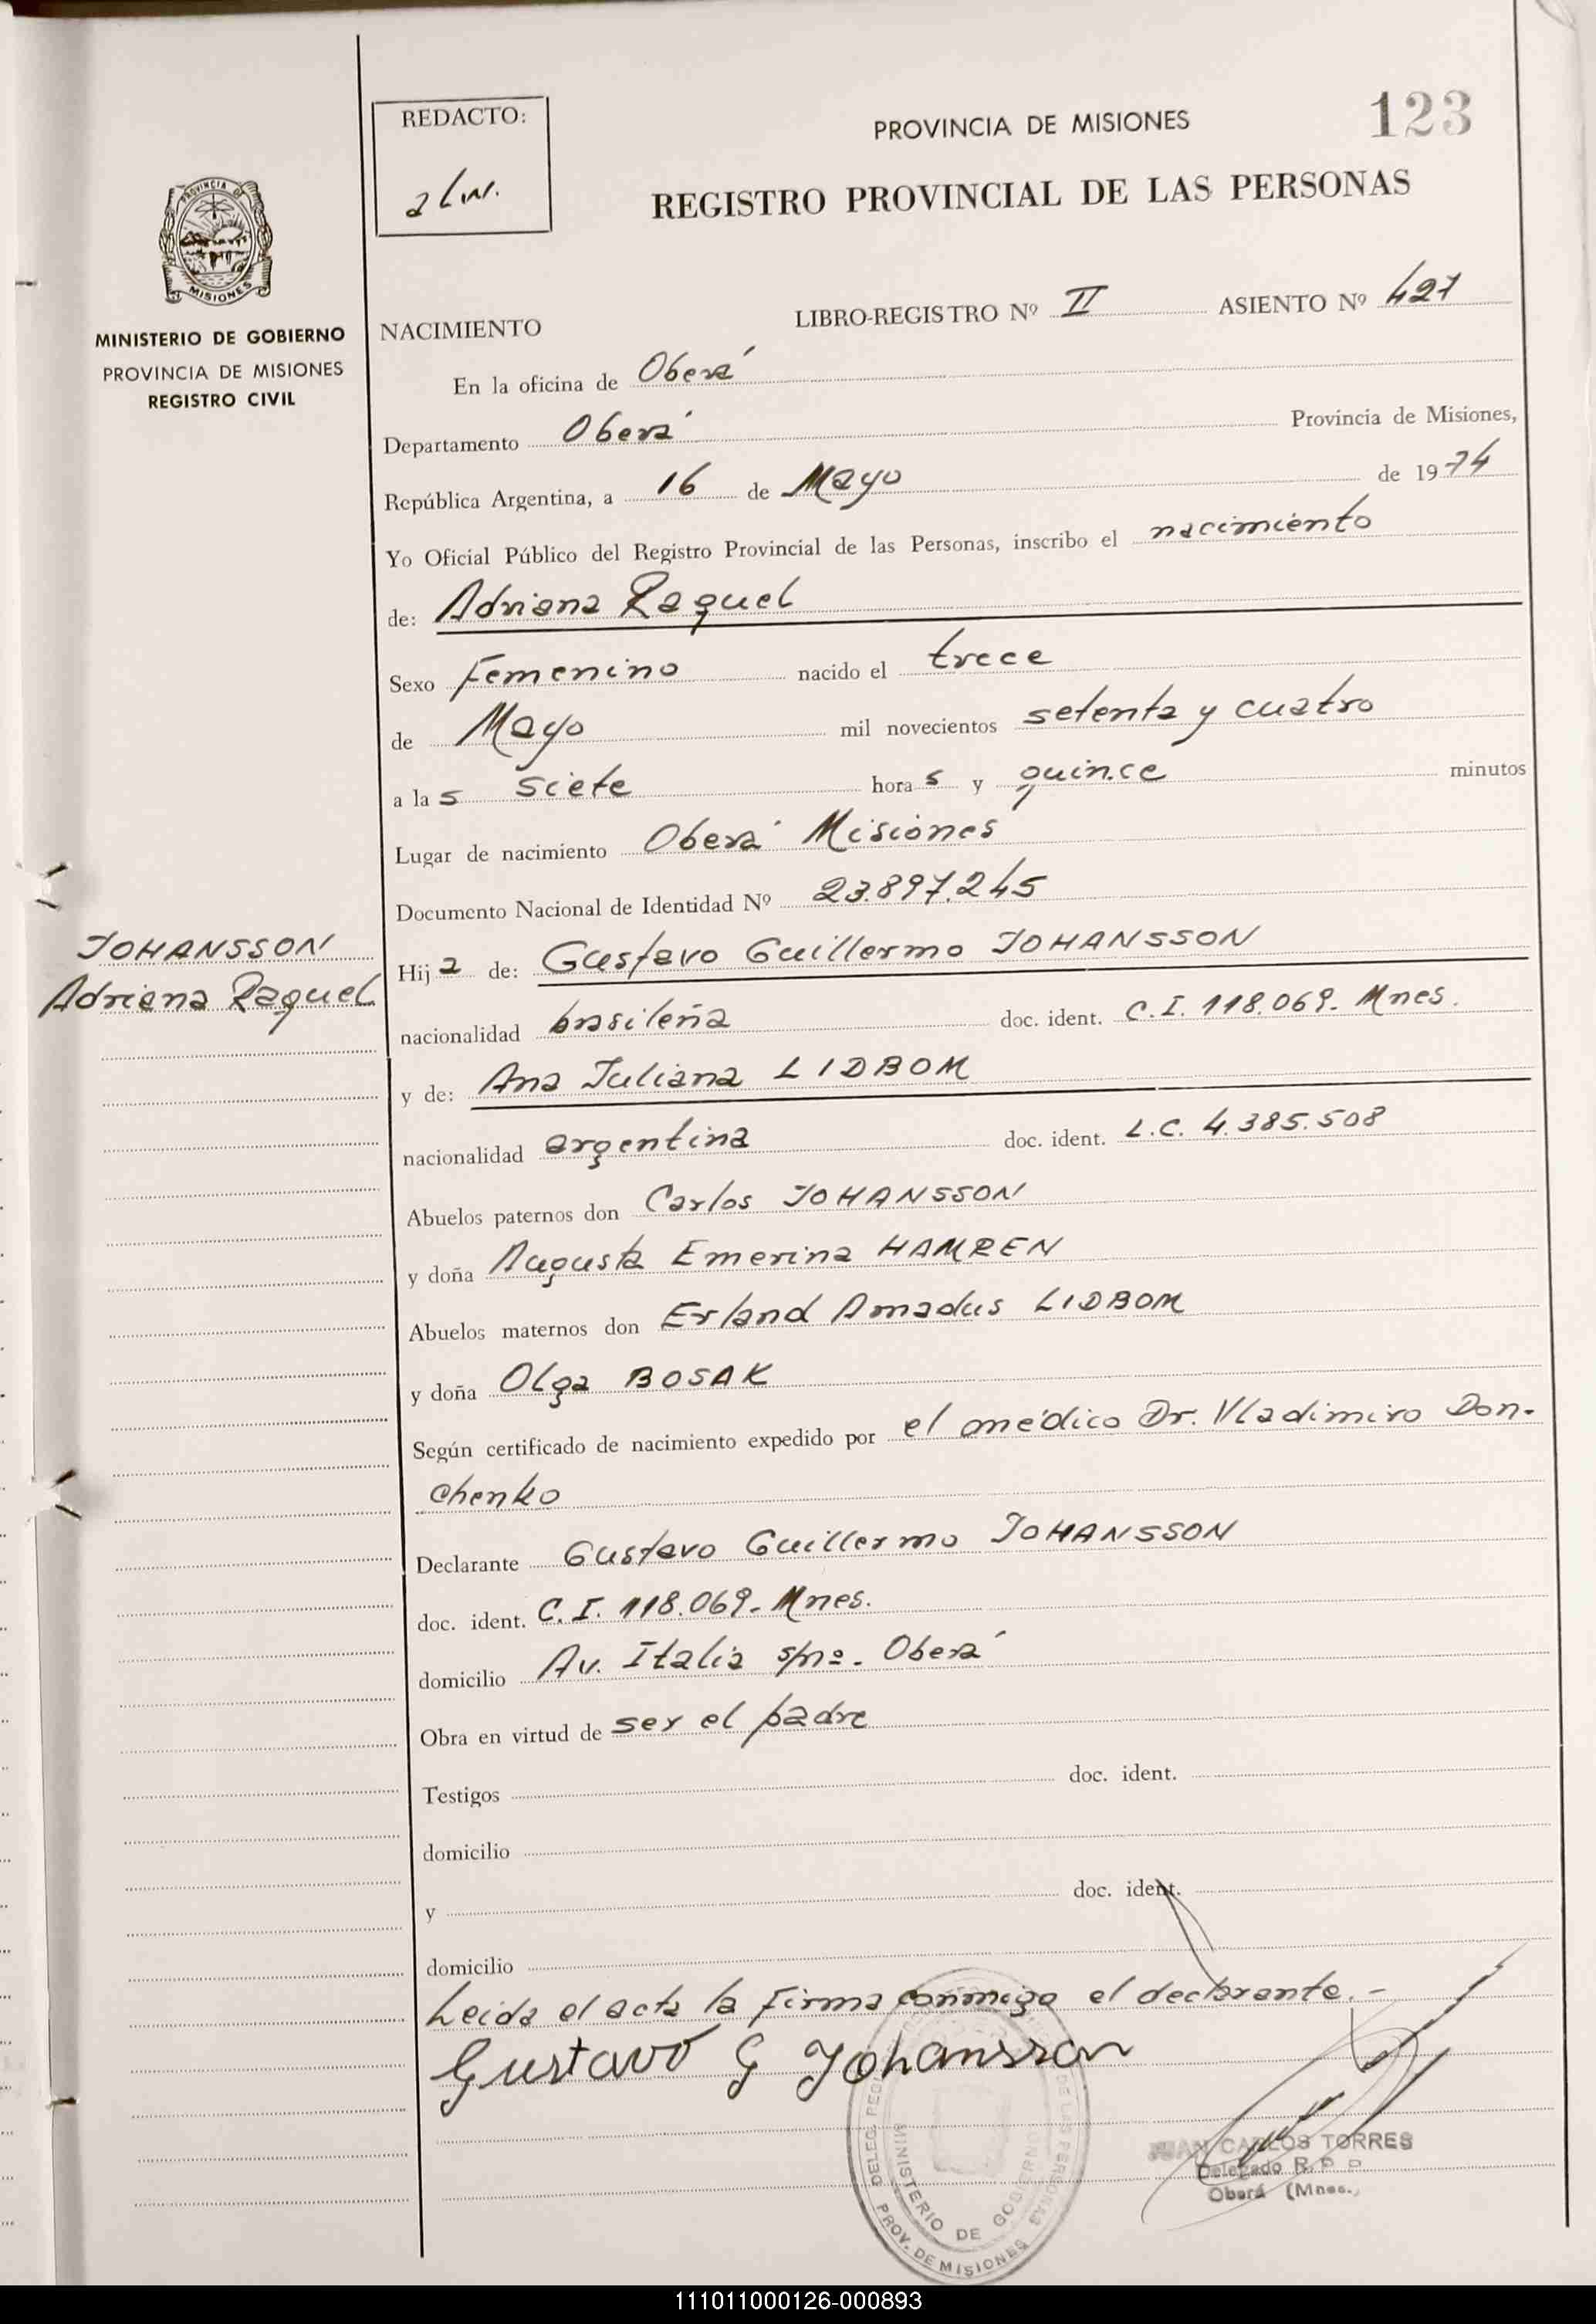 REDACTO:
PROVINCIA DE MISIONES
123
REGISTRO PROVINCIAL DE LAS PERSONAS
PROVINCIA DE
MISIONES
MINISTERIO DE GOBIERNO
PROVINCIA DE MISIONES
REGISTRO CIVIL
NACIMIENTO LIBRO-REGISTRO Nº II ASIENTO Nº 427
En la oficina de Oberá
Departamento Oberá Provincia de Misiones,
República Argentina, a 16 de Mayo de 1974
Yo Oficial Público del Registro Provincial de las Personas, inscribo el nacimiento
de: Adriana Raquel
Sexo Femenino nacido el trece
de Mayo mil novecientos setenta y cuatro
a las siete horas y quince minutos
Lugar de nacimiento Oberá Misiones
Documento Nacional de Identidad Nº 23.897.245
JOHANSSON
Adriana Raquel
Hija de: Gustavo Guillermo JOHANSSON
nacionalidad brasileña doc. ident. C.I. 118.069. Mnes.
y de: Ana Juliana LIDBOM
nacionalidad argentina doc. ident. L.C. 4.385.508
Abuelos paternos don Carlos JOHANSSON
y doña Augusta Emerina HAMREN
Abuelos maternos don Erland Amadus LIDBOM
y doña Olga BOSAK
Según certificado de nacimiento expedido por el médico Dr. Vladimiro Don-
chenko
Declarante Gustavo Guillermo JOHANSSON
doc. ident. C.I. 118.069. Mnes.
domicilio Av. Italia s/nº. Oberá
Obra en virtud de ser el padre
Testigos doc. ident.
domicilio
y doc. ident.
domicilio
Leída el acta la firma conmigo el declarante.-
Gustavo G Johansson
DELEG. REG. DE LAS PERSONAS
MINISTERIO DE GOBIERNO
PROV. DE MISIONES
JUAN CARLOS TORRES
Delegado R. P. P.
Oberá (Mnes.)
111011000126-000893